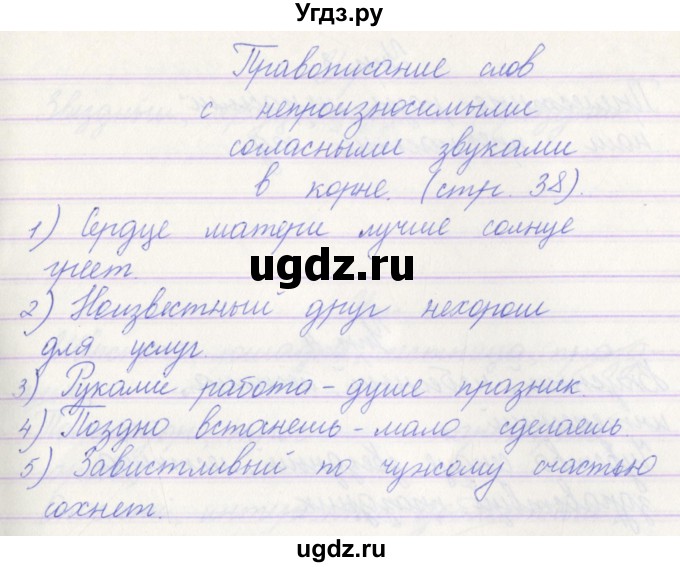 Угдз.ру
Правописание слов
с непроизносимыми
согласными звуками
в корне. (стр. 38).
1) Сердце матери лучше солнце
греет.
ugdz.ru
2) Неизвестный друг нехорош
для услуг.
3) Руками работа - душе празник.
4) Поздно встанешь - мало сделаешь.
5) Завистливый по чужому счастью
сохнет.
ugdz.ru